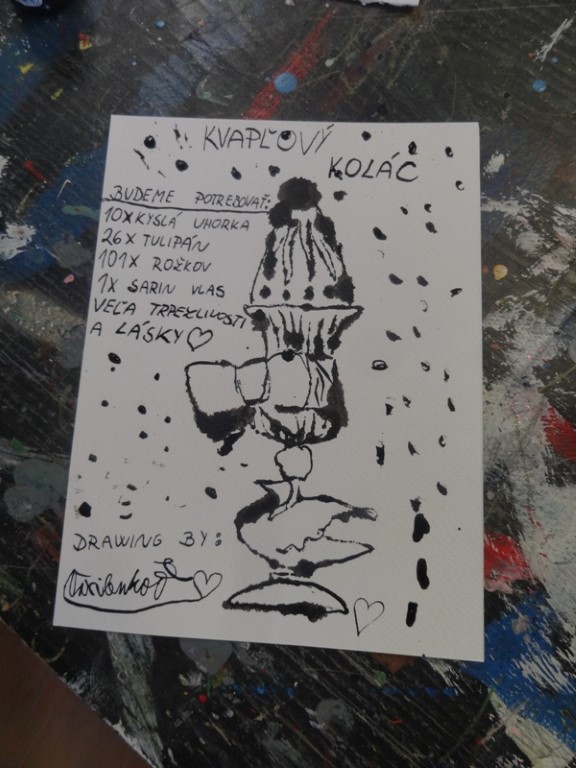 KVAPĽOVÝ
KOLÁČ
BUDEME POTREBOVAŤ:
10X KYSLÁ UHORKA
26X TULIPÁN
101X ROŽKOV
1X SARIN VLAS
VEĽA TRPEZLIVOSTI
A LÁSKY
DRAWING BY: